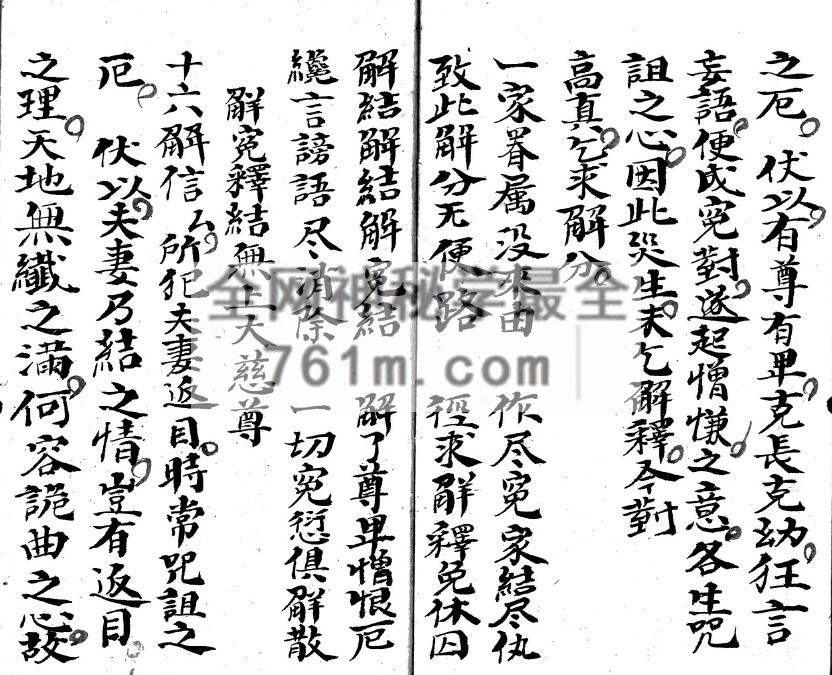 之厄。伏以。有尊有卑。克長克幼。狂言
妄語。便成寃對。遂起憎慊之意。各生咒
詛之心。因此災生。未乞解釋。今對
高真。乞求解分。
一家眷属没來由 作尽寃家結尽仇
致此解分无便路 徑求解釋免休囚
解結解結解寃結 解了尊卑憎恨厄
纔言謗語尽消除 一切寃愆俱解散
解寃釋結無上大慈尊
十六解信厶。所犯夫妻返目。時常咒詛之
厄。伏以。夫妻乃結之情。豈有返目
之理。天地無纖之滿。何容詭曲之心。故
全网神秘学最全
761m.com